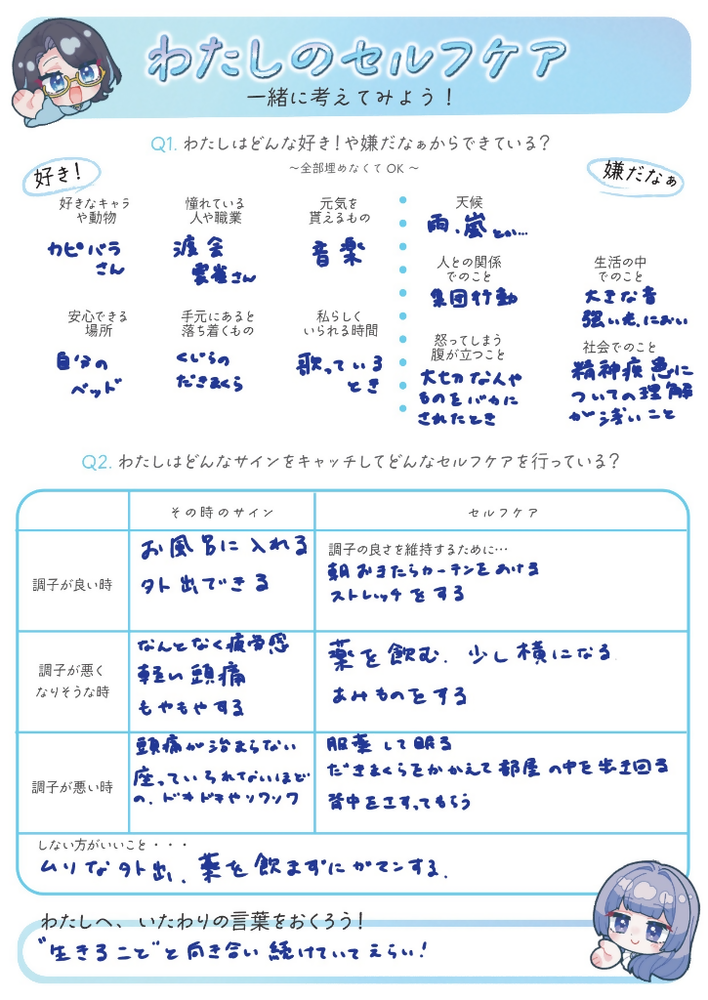 わたしのセルフケア
一緒に考えてみよう！
Q1. わたしはどんな好き！や嫌だなぁからできている？
～全部埋めなくて OK ～
好き！
嫌だなぁ
好きなキャラ
や動物
カピバラ
さん
憧れている
人や職業
渡会
雲雀さん
元気を
貰えるもの
音楽
安心できる
場所
自分の
ベッド
手元にあると
落ち着くもの
くじらの
だきまくら
私らしく
いられる時間
歌っている
とき
天候
雨、嵐とか…
人との関係
でのこと
集団行動
怒ってしまう
腹が立つこと
大切な人や
ものをバカに
されたとき
生活の中
でのこと
大きな音
強い光、におい
社会でのこと
精神疾患に
ついての理解
が浅いこと
Q2. わたしはどんなサインをキャッチしてどんなセルフケアを行っている？
その時のサイン
セルフケア
調子が良い時
お風呂に入れる
外出できる
調子の良さを維持するために…
朝おきたらカーテンをあける
ストレッチをする
調子が悪く
なりそうな時
なんとなく疲労感
軽い頭痛
もやもやする
薬を飲む、少し横になる
あみものをする
調子が悪い時
頭痛が治まらない
座っていられないほど
の、ドキドキやソワソワ
服薬して眠る
だきまくらをかかえて部屋の中を歩き回る
背中をさすってもらう
しない方がいいこと・・・
ムリな外出、薬を飲まずにガマンする。
わたしへ、いたわりの言葉をおくろう！
"生きること"と向き合い続けていてえらい！